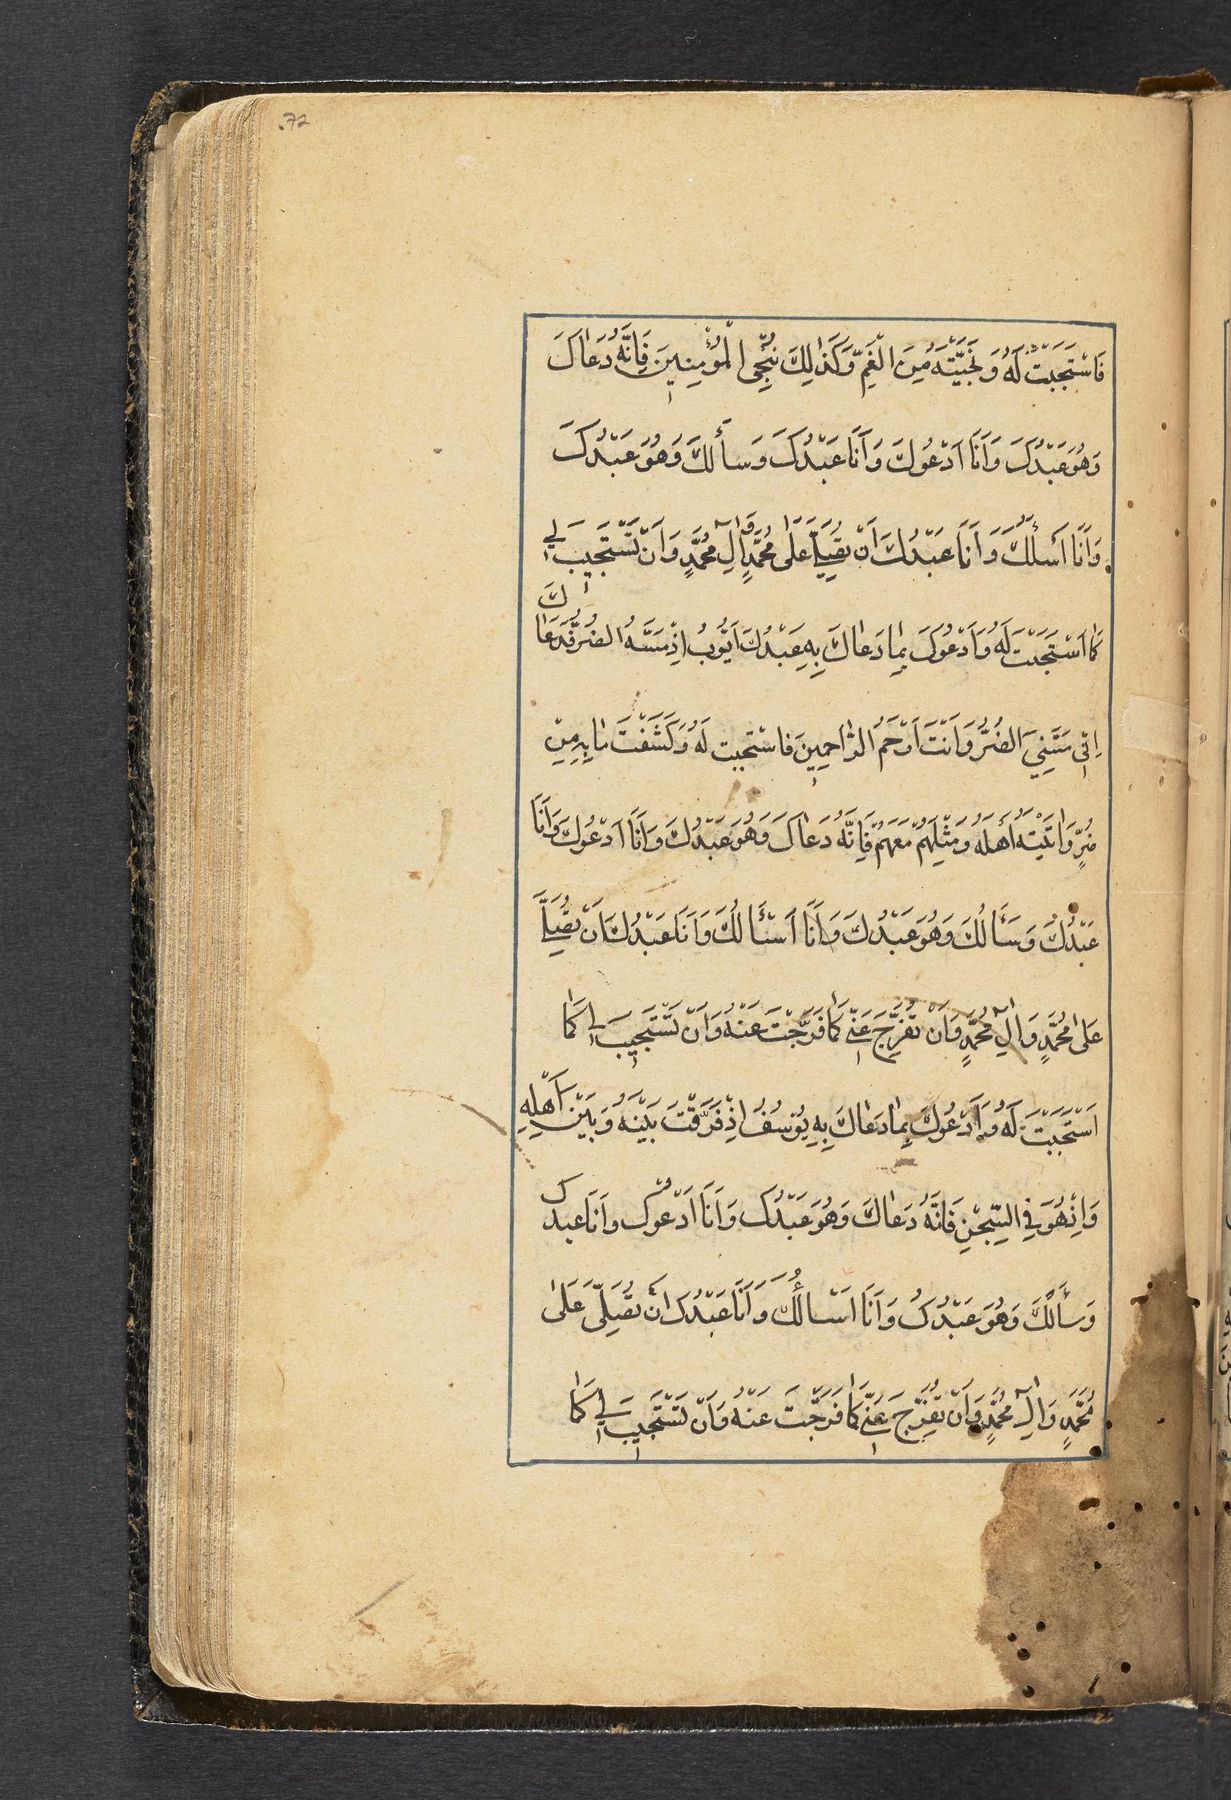 .72
فَاسْتَجَبْتَ لَهُ وَنَجَّيْتَهُ مِنَ الْغَمِّ وَكَذٰلِكَ نُنْجِى الْمُؤْمِنِينَ فَاِنَّهُ دَعَاكَ
وَهُوَ عَبْدُكَ وَاَنَا اَدْعُوكَ وَاَنَا عَبْدُكَ وَسَأَلَكَ وَهُوَ عَبْدُكَ
وَاَنَا اَسْئَلُكَ وَاَنَا عَبْدُكَ اَنْ تُصَلِّىَ عَلٰى مُحَمَّدٍ وَاٰلِ مُحَمَّدٍ وَاَنْ تَسْتَجِيبَ لِى
كَمَا اسْتَجَبْتَ لَهُ وَاَدْعُوكَ بِمَا دَعَاكَ بِهِ عَبْدُكَ اَيُّوبُ اِذْ مَسَّهُ الضُرُّ فَدَعَاكَ
اِنّى مَسَّنِىَ الضُرُّ وَاَنْتَ اَرْحَمُ الرَّاحِمِينَ فَاسْتَجبت لَهُ وَكَشَفْتَ مَا بِهِ مِنْ
ضُرٍّ وَاٰتَيْتَهُ اَهْلَهُ وَمِثْلَهُمْ مَعَهُمْ فَاِنَّهُ دَعَاكَ وَهُوَ عَبْدُكَ وَاَنَا اَدْعُوكَ وَاَنَا
عَبْدُكَ وَسَأَلَكَ وَهُوَ عَبْدُكَ وَاَنَا اَسْئَالُكَ وَاَنَا عَبْدُكَ اَنْ تُصَلِّىَ
عَلٰى مُحَمَّدٍ وَاٰلِ مُحَمَّدٍ وَاَنْ تُفَرِّجَ عَنّى كَمَا فَرَّجْتَ عَنْهُ وَاَنْ تَسْتَجِيبَ لِى كَمَا
اسْتَجَبْتَ لَهُ وَاَدْعُوكَ بِمَا دَعَاكَ بِهِ يُوسُفُ اِذْ فَرَّقْتَ بَيْنَهُ وَبَيْنَ اَهْلِهِ
وَاِذْ هُوَ فِى السِّجْنِ فَاِنَّهُ دَعَاكَ وَهُوَ عَبْدُكَ وَاَنَا اَدْعُوكَ وَاَنَا عَبدك
وَسَأَلَكَ وَهُوَ عَبْدُكَ وَاَنَا اَسْأَلُكَ وَاَنَا عَبْدُكَ اَنْ تُصَلِّىَ عَلٰى
مُحَمَّدٍ وَاٰلِ مُحَمَّدٍ وَاَنْ تُفَرِّجَ عَنّى كَمَا فَرَّجْتَ عَنْهُ وَاَنْ تَسْتَجِيبَ لِى كَمَا